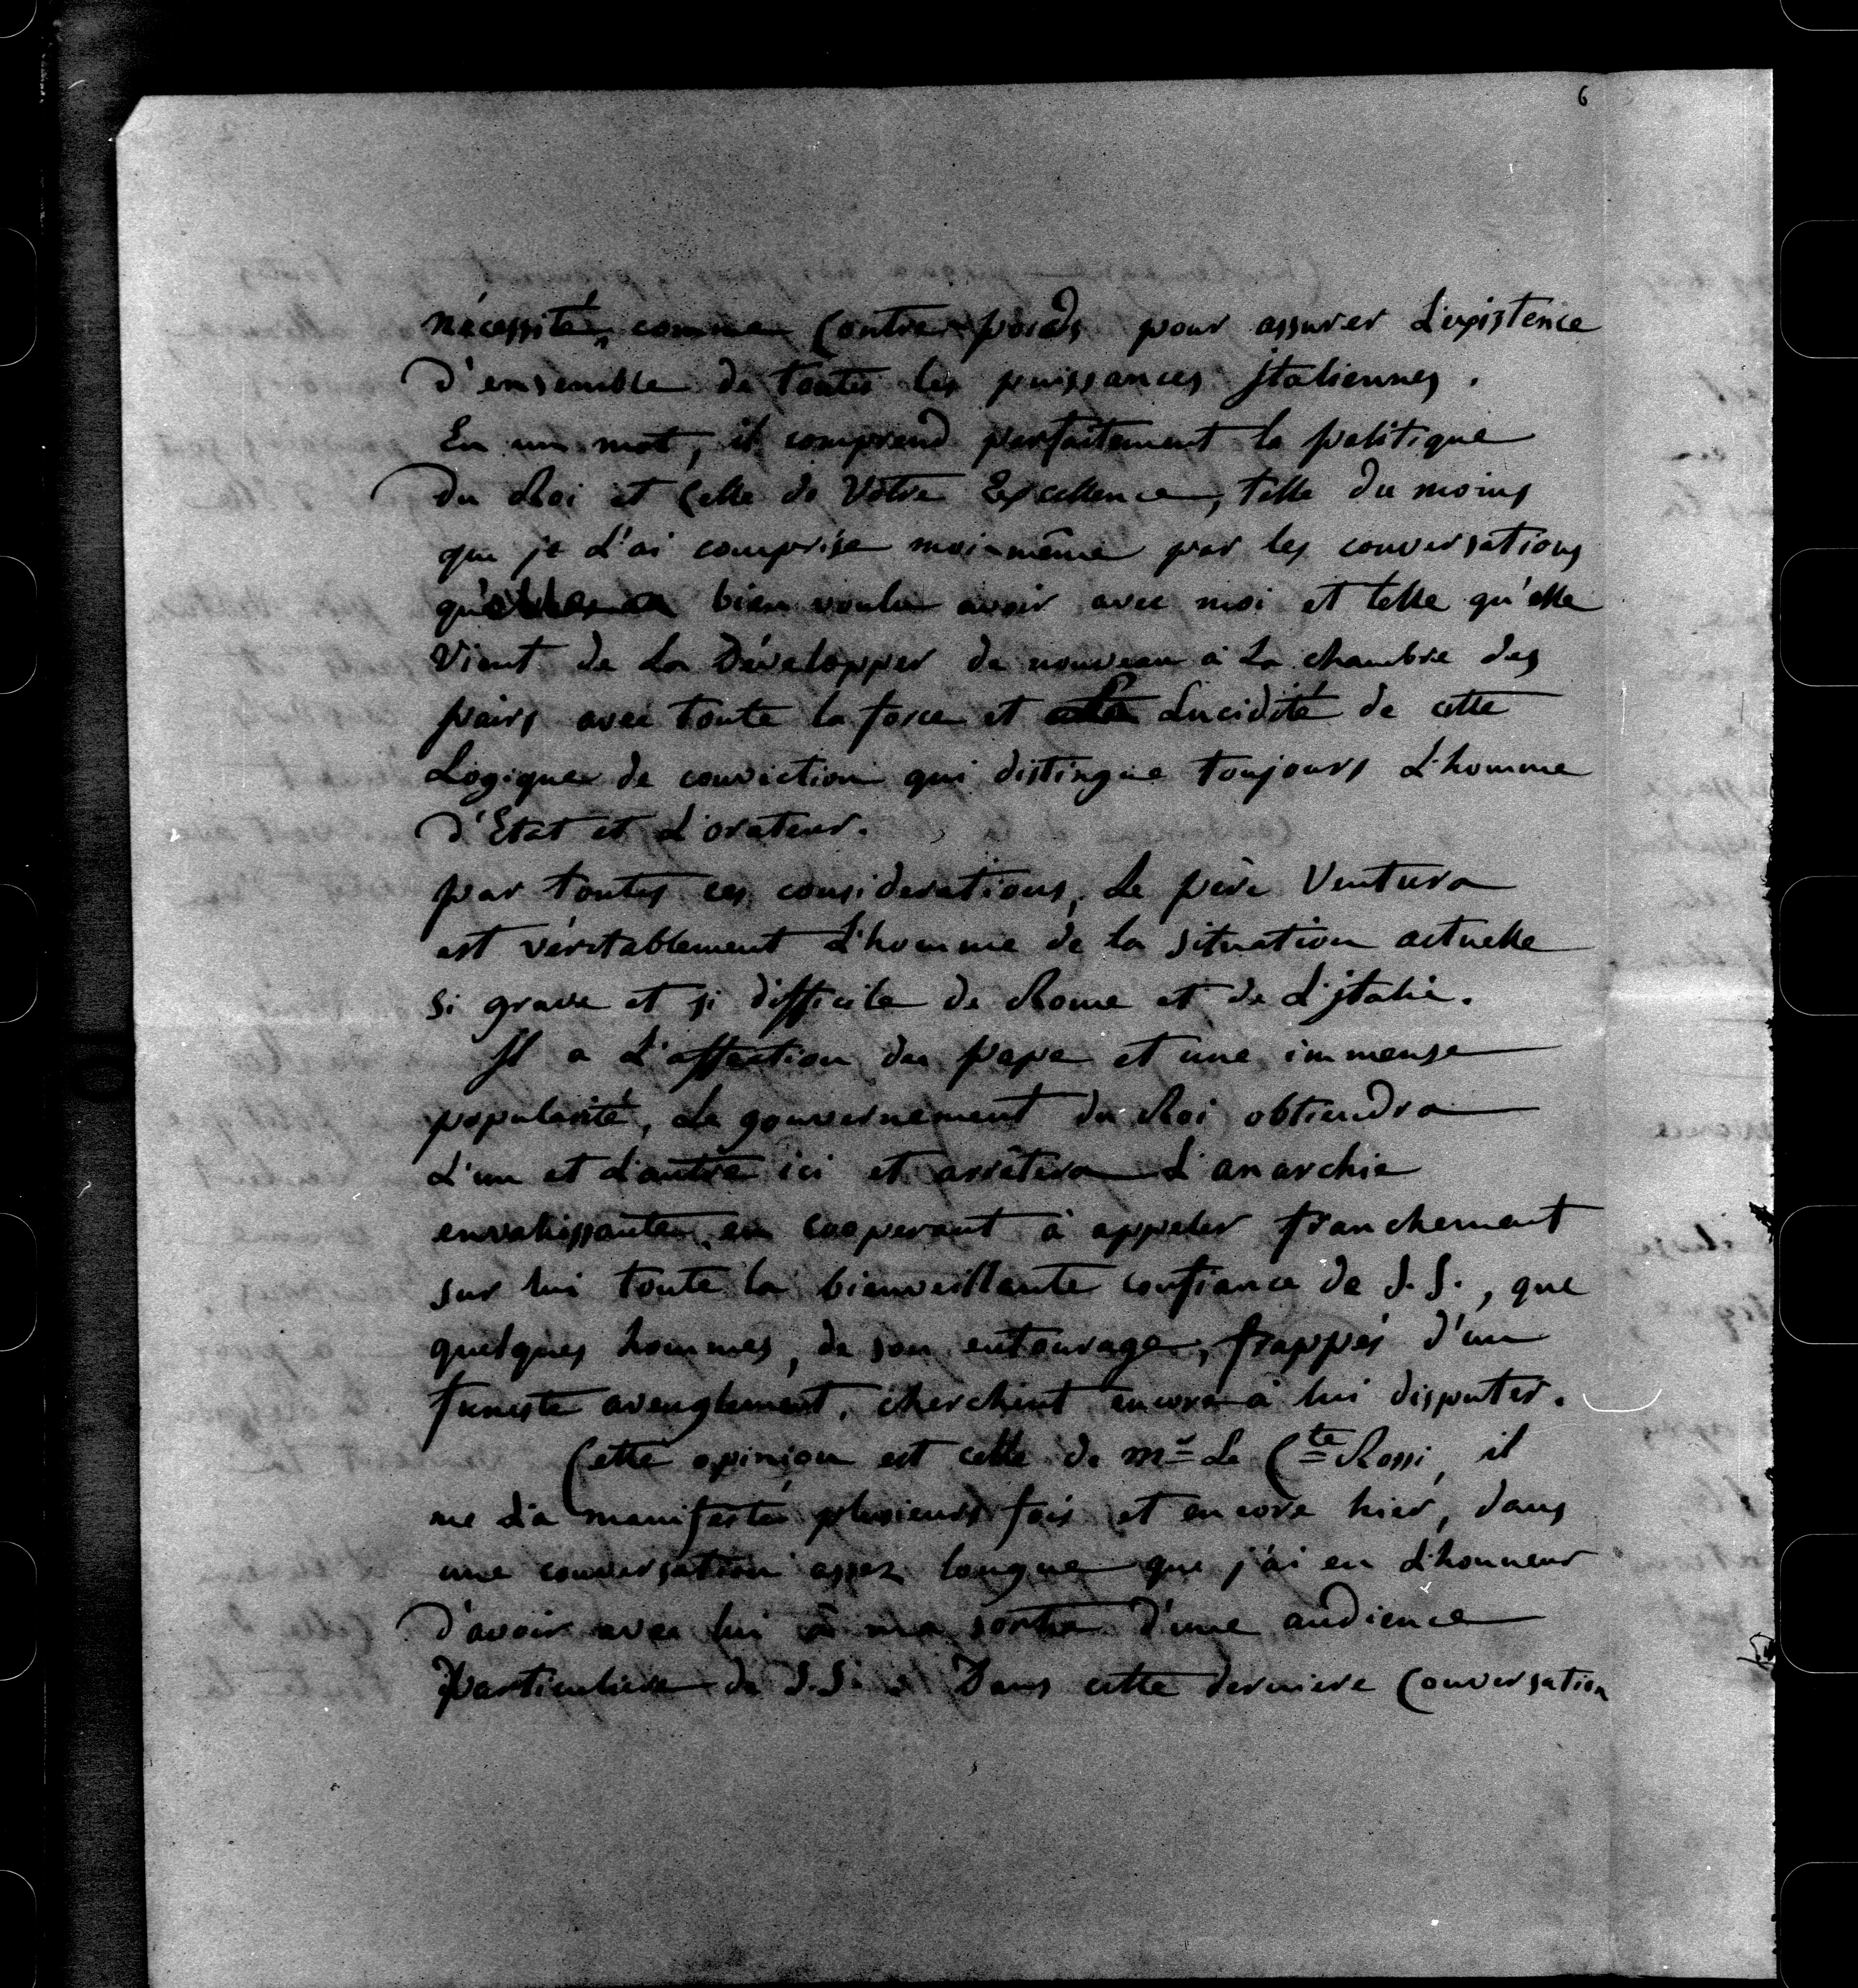 6
nécessité, comme Contre-poids pour assurer L'existence
d'ensemble de toutes les puissances jtaliennes.
En un mot, il comprend parfaitement la politique
du Roi et Celle de Votre Excellence, telle du moins
que je L'ai comprise moi-même par les conversations
qu'elle a bien voulu avoir avec moi et telle qu'elle
Vient de La Développer de nouveau à La chambre des
pairs avec toute la force et La Lucidité de cette
Logique de conviction qui distingue toujours L'homme
d'Etat et L'orateur.
par toutes ces considerations, Le père Ventura
est véritablement L'homme de la situation actuelle
si grave et si difficile de Rome et de L'jtalie.
Il a L'affection du pape et une immense
popularité, Le gouvernement du Roi obtiendra
L'un et L'autre ici et arrêtera L'anarchie
envahissante, en cooperant à appeler franchement
sur lui toute la bienveillante confiance de S. S., que
quelques hommes, de son entourage, frappés d'un
funeste aveuglement, cherchent encore à lui disputer.
Cette opinion est celle de mr Le Cte Rossi, il
me L'a manifesté plusieurs fois et encore hier, dans
une conversation assez longue que j'ai eu L'honneur
d'avoir avec lui à ma sortie d'une audience
particuliere de S.S. Dans cette derniere Conversation